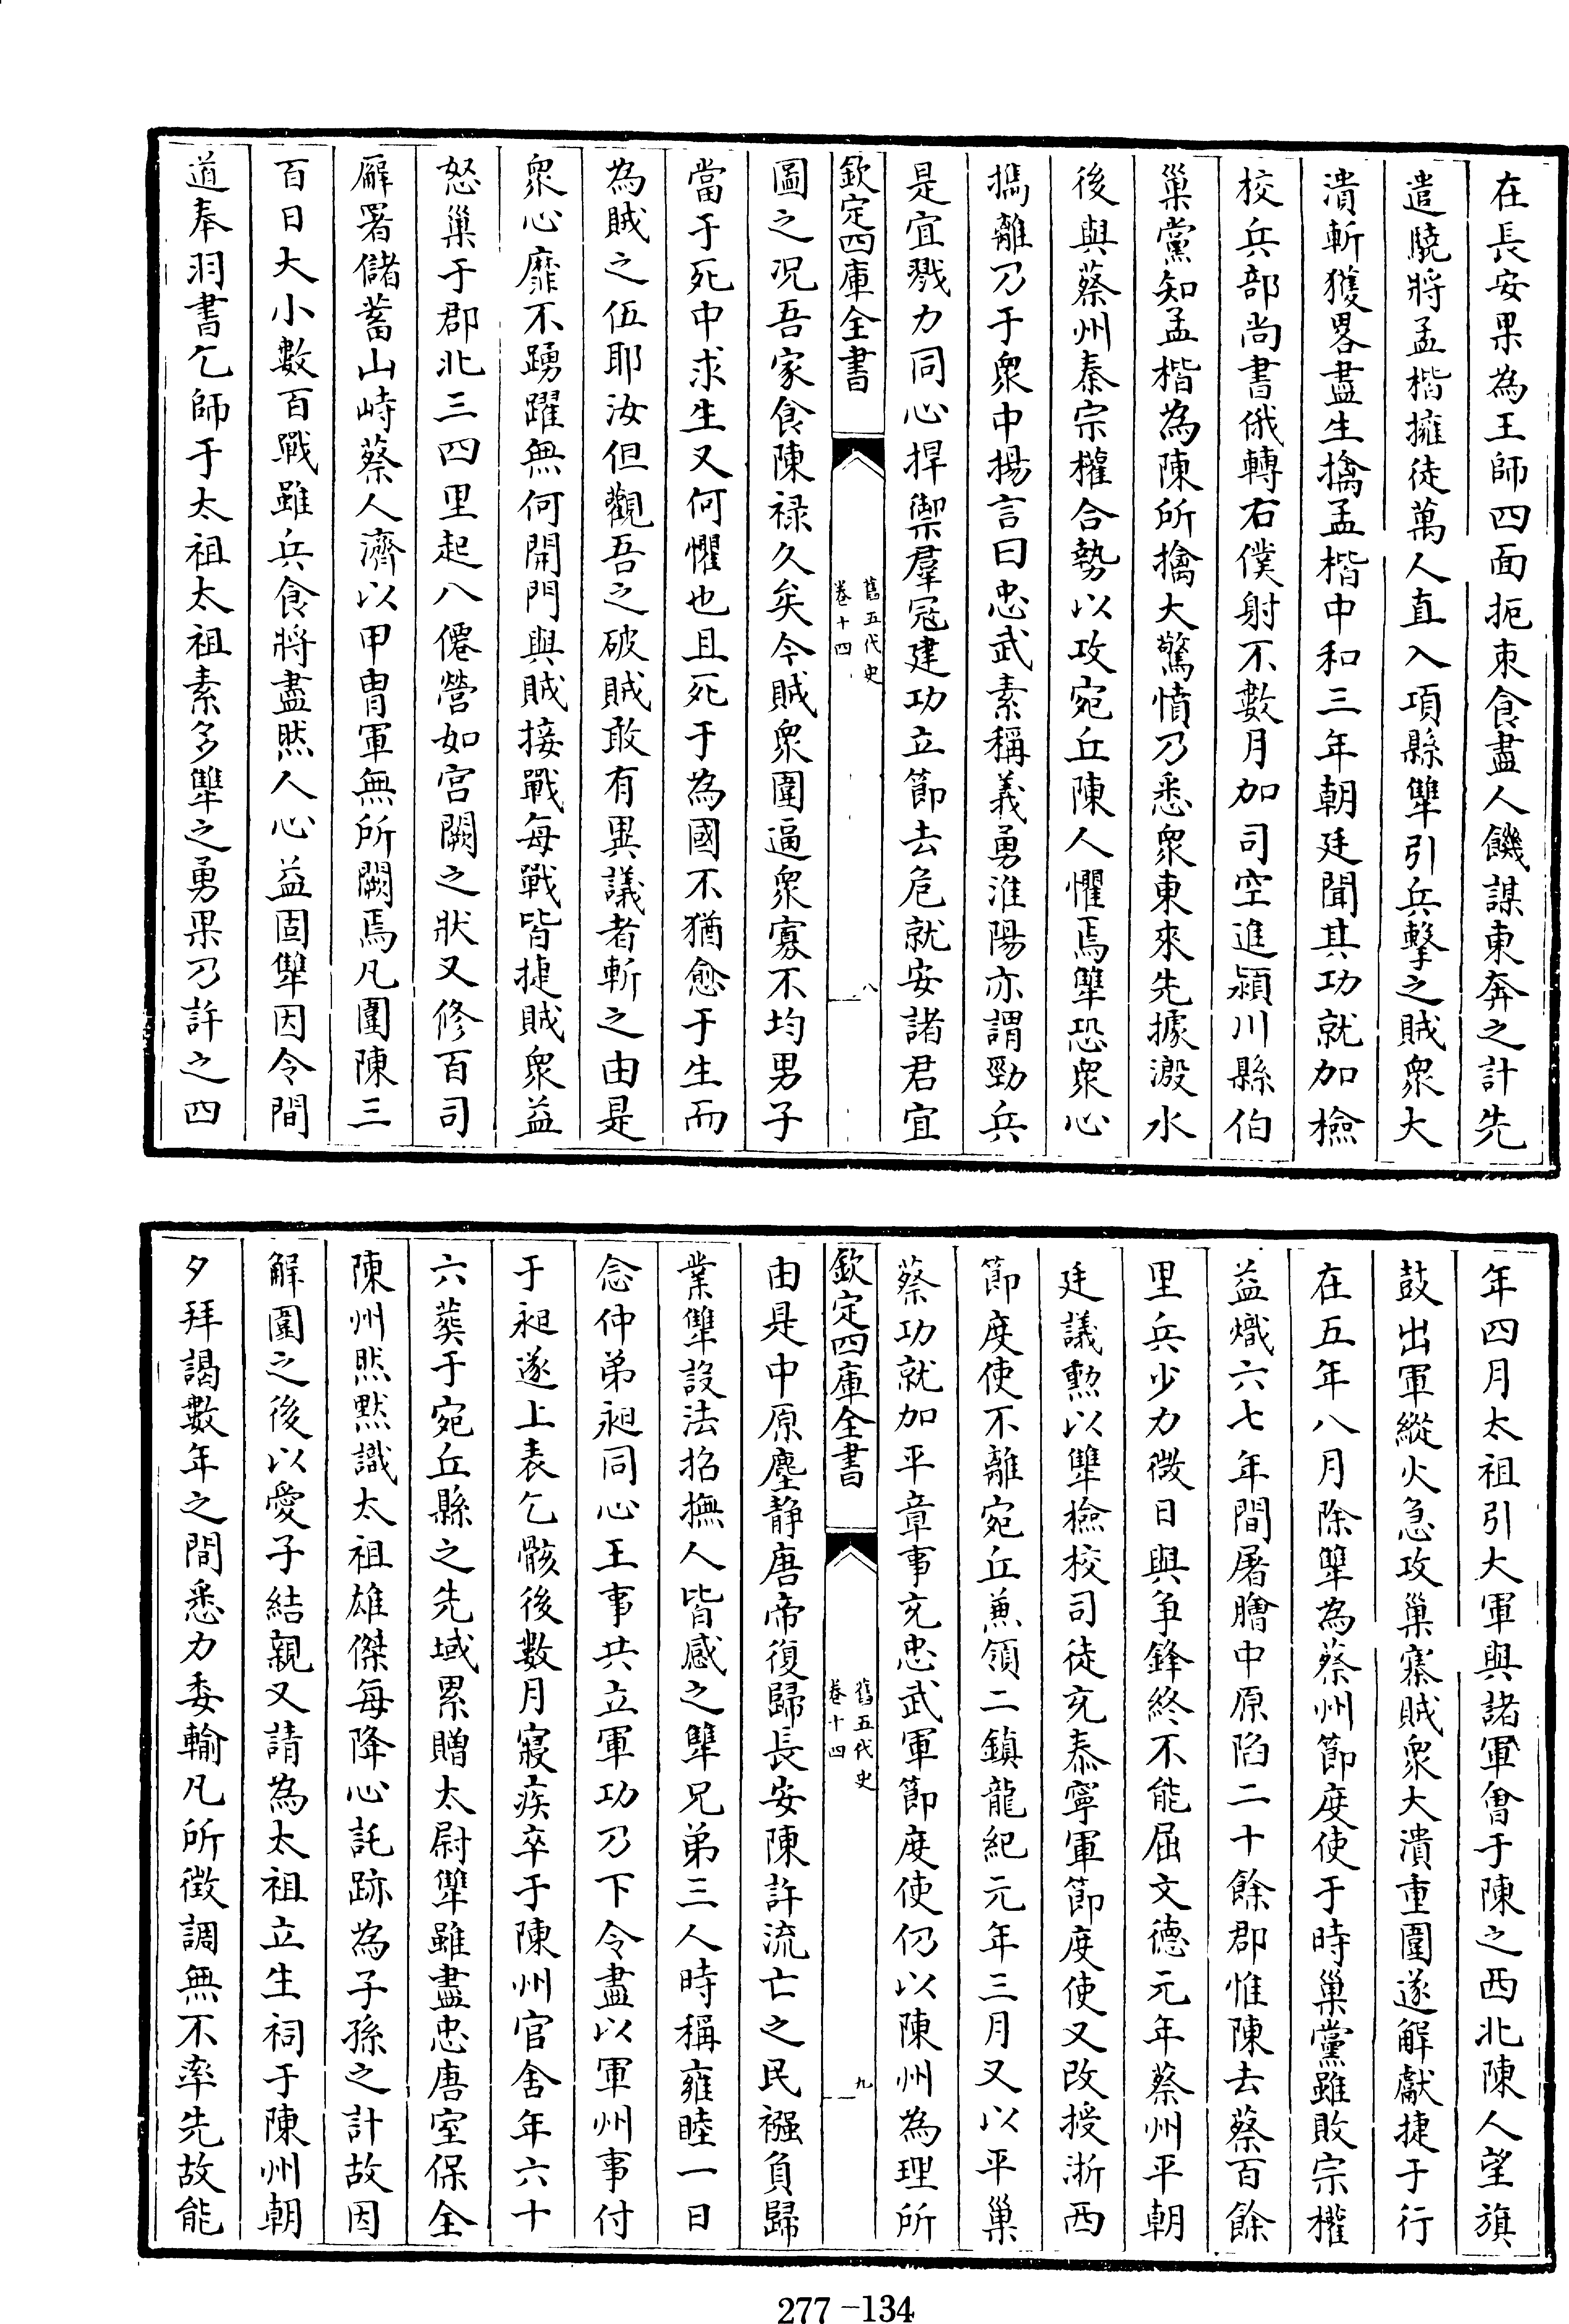 在長安果為王師四面扼束食盡人饑謀東奔之計先
遣驍將孟楷擁徒萬人直入項縣犨引兵擊之賊衆大
潰斬獲畧盡生擒孟楷中和三年朝廷聞其功就加檢
校兵部尚書俄轉右僕射不數月加司空進潁川縣伯
巢黨知孟楷為陳所擒大驚憤乃悉衆東來先據溵水
後與蔡州秦宗權合勢以攻宛丘陳人懼焉犨恐衆心
攜離乃于衆中揚言曰忠武素稱義勇淮陽亦謂勁兵
是宜戮力同心捍禦羣冦建功立節去危就安諸君宜
欽定四庫全書
舊五代史
卷十四
八
圖之况吾家食陳禄久矣今賊衆圍逼衆寡不均男子
當于死中求生又何懼也且死于為國不猶愈于生而
為賊之伍耶汝但觀吾之破賊敢有異議者斬之由是
衆心靡不踴躍無何開門與賊接戰每戰皆捷賊衆益
怒巢于郡北三四里起八僊營如宫闕之狀又修百司
廨署儲蓄山峙蔡人濟以甲胄軍無所闕焉凡圍陳三
百日大小數百戰雖兵食將盡然人心益固犨因令間
道奉羽書乞師于太祖太祖素多犨之勇果乃許之四
年四月太祖引大軍與諸軍會于陳之西北陳人望旗
鼓出軍縱火急攻巢寨賊衆大潰重圍遂解獻捷于行
在五年八月除犨為蔡州節度使于時巢黨雖敗宗權
益熾六七年間屠膾中原陷二十餘郡惟陳去蔡百餘
里兵少力微日與争鋒終不能屈文德元年蔡州平朝
廷議勲以犨檢校司徒充泰寧軍節度使又改授浙西
節度使不離宛丘兼領二鎮龍紀元年三月又以平巢
蔡功就加平章事充忠武軍節度使仍以陳州為理所
欽定四庫全書
舊五代史
卷十四
九
由是中原塵静唐帝復歸長安陳許流亡之民襁負歸
業犨設法招撫人皆感之犨兄弟三人時稱雍睦一日
念仲弟昶同心王事共立軍功乃下令盡以軍州事付
于昶遂上表乞骸後數月寢疾卒于陳州官舍年六十
六葬于宛丘縣之先域累贈太尉犨雖盡忠唐室保全
陳州然默識太祖雄傑每降心託跡為子孫之計故因
解圍之後以愛子結親又請為太祖立生祠于陳州朝
夕拜謁數年之間悉力委輸凡所徵調無不率先故能
277-134